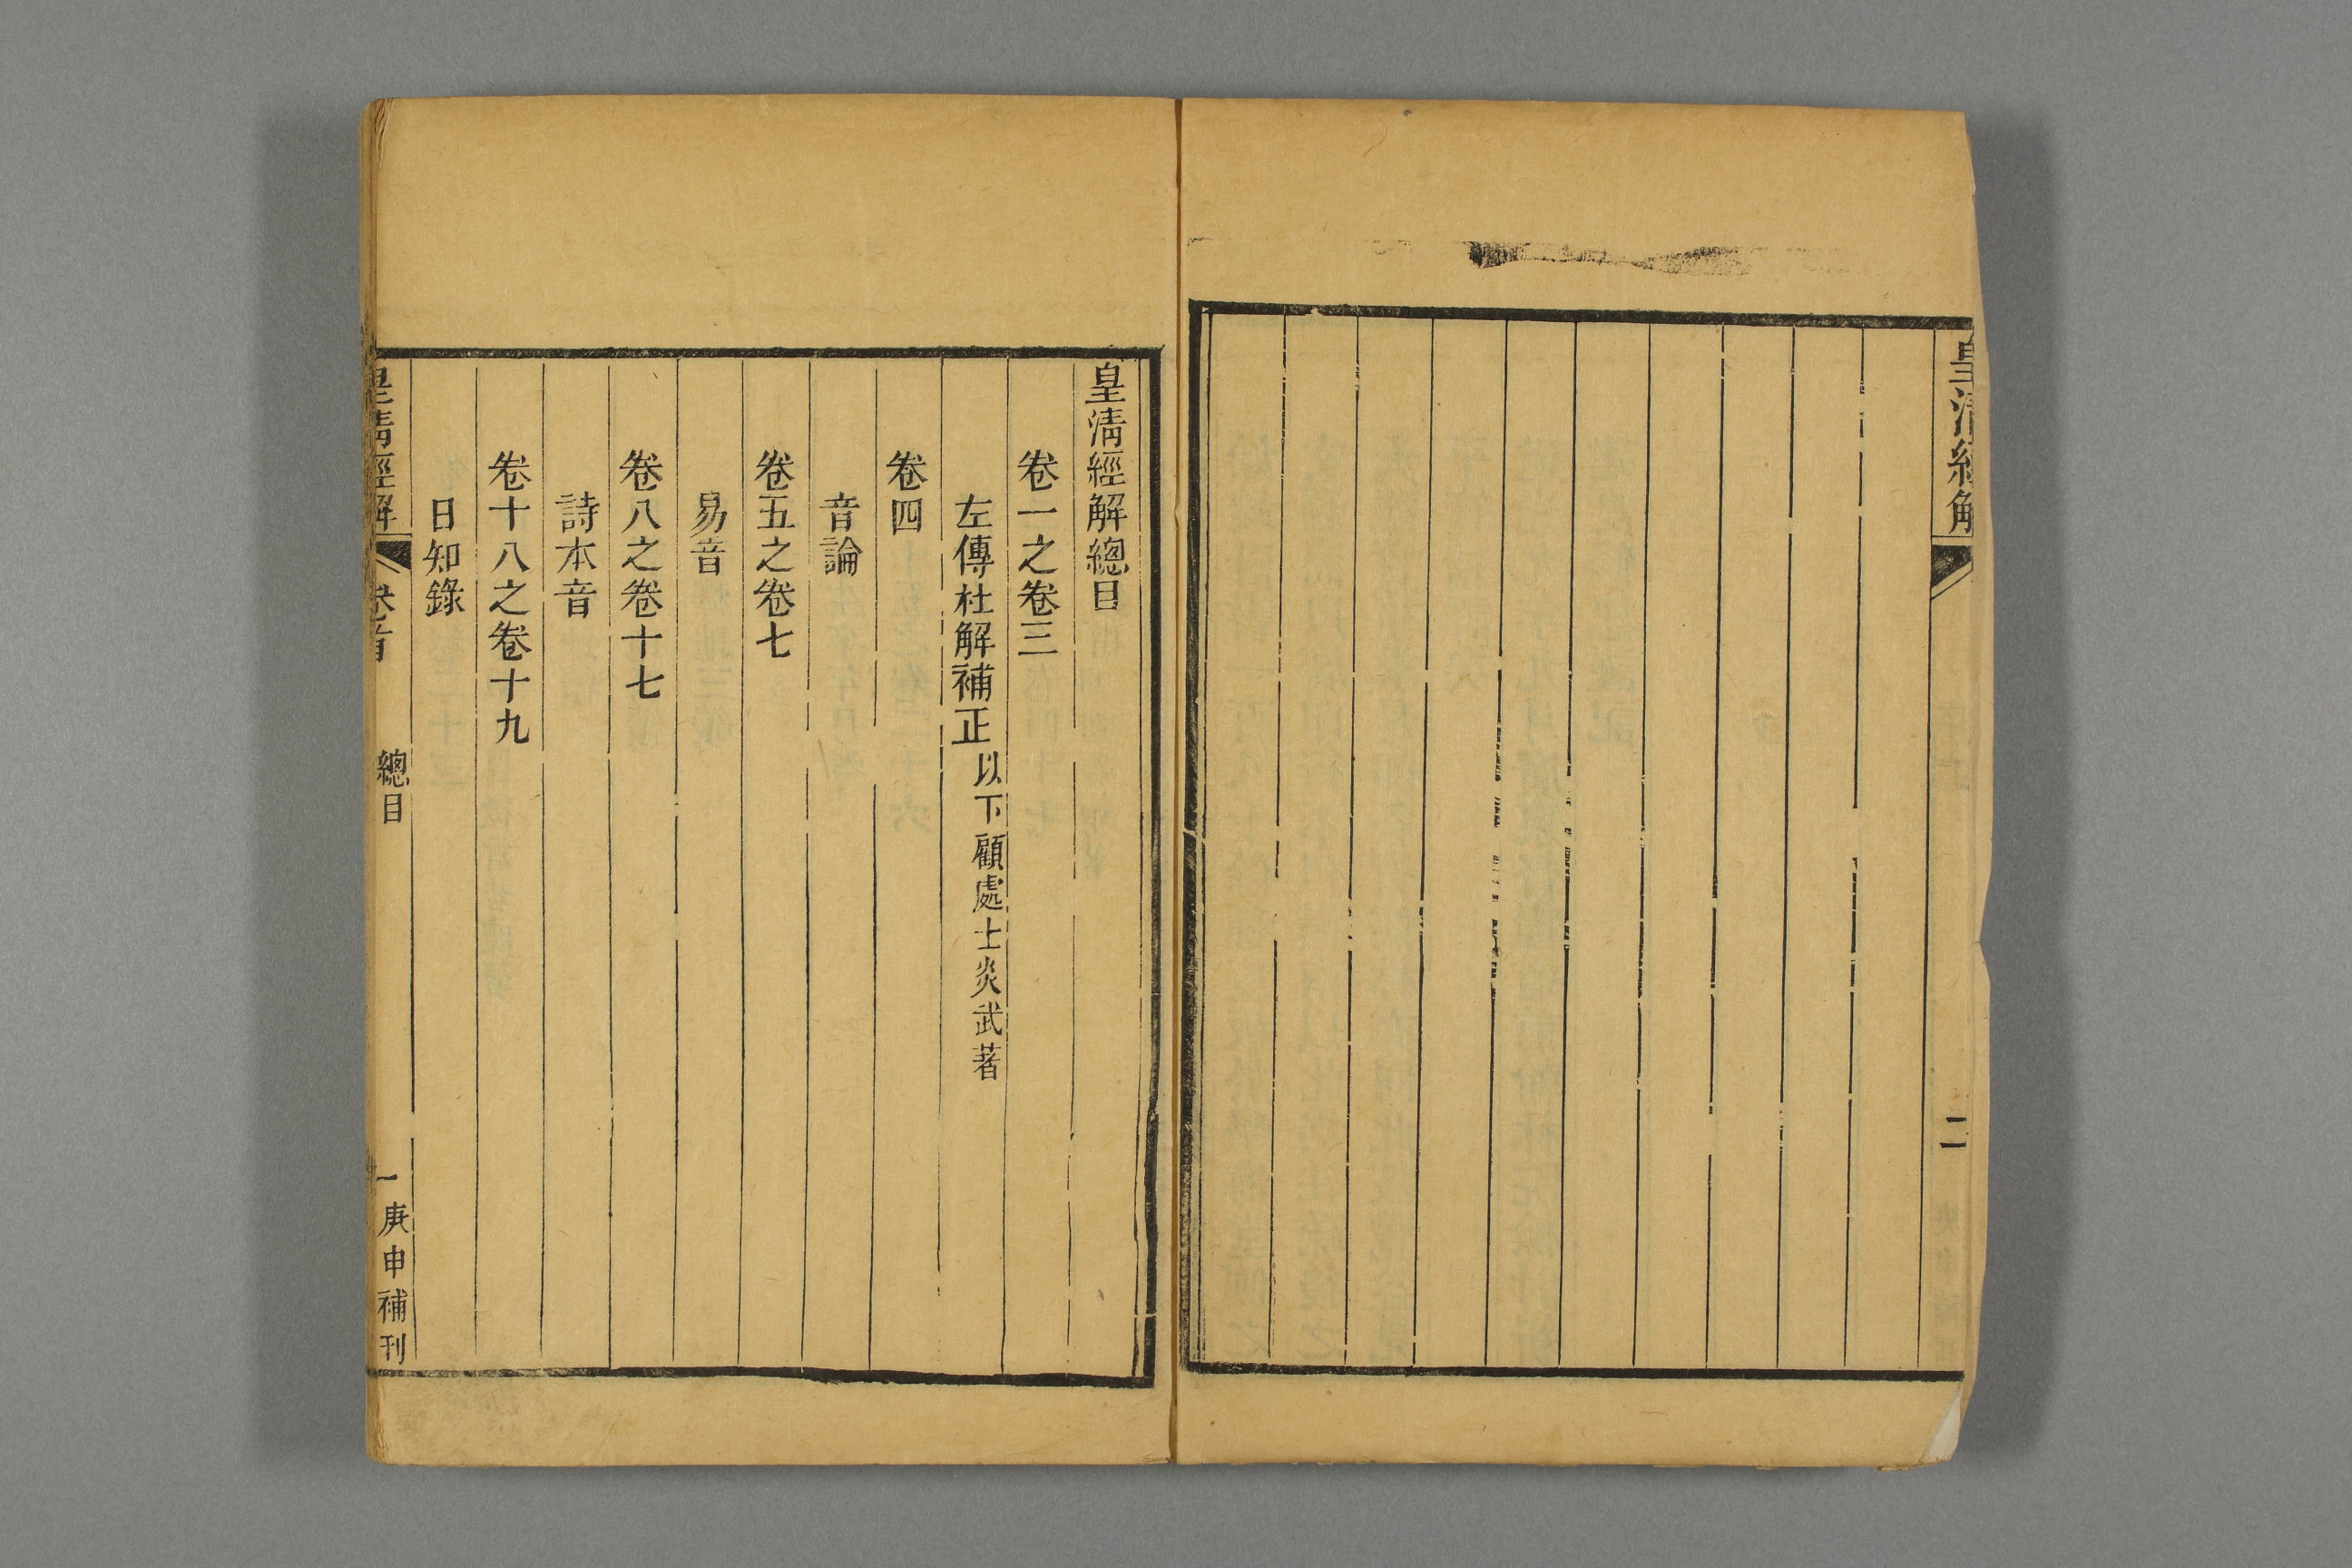 皇清經解
二
皇清經解總目
卷一之卷三
左傳杜解補正以下顧處士炎武著
卷四
音論
卷五之卷七
易音
卷八之卷十七
詩本音
卷十八之卷十九
日知錄
皇清經解 卷首 總目 一 庚申補刊